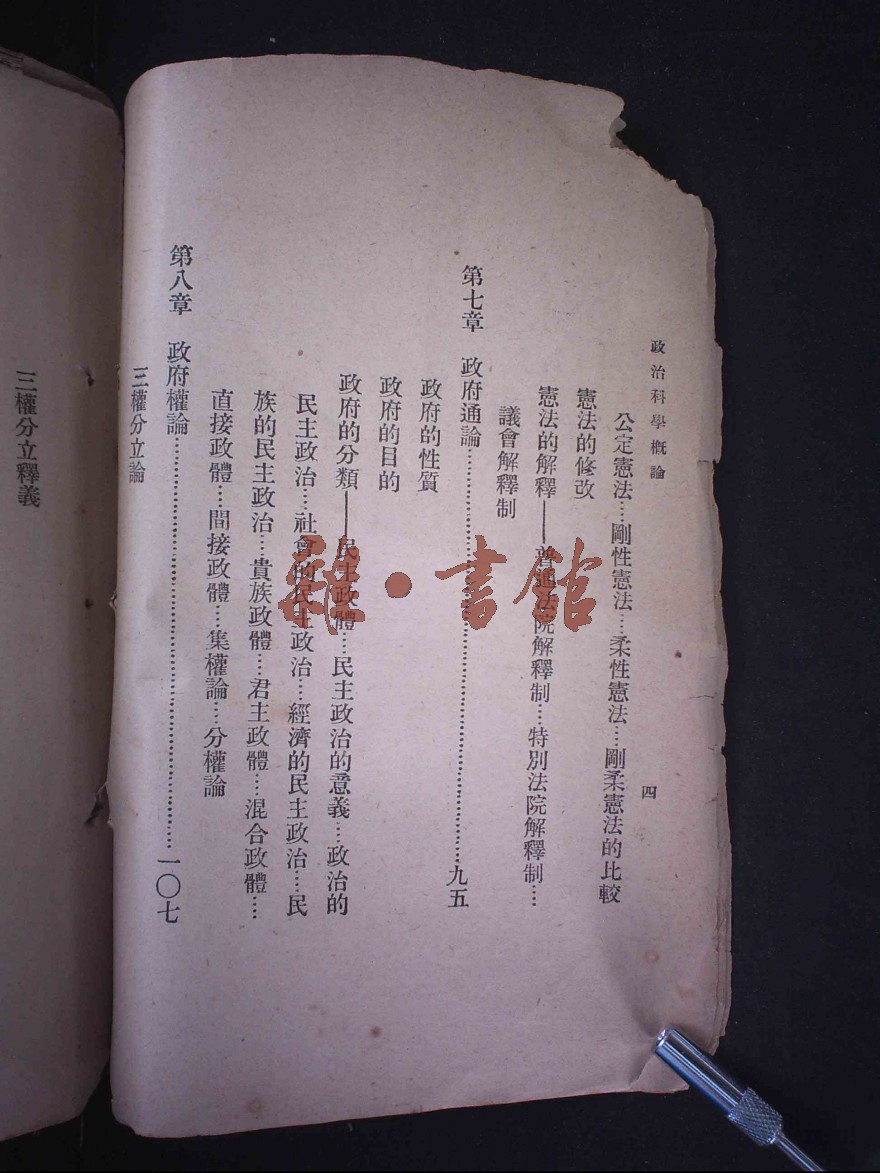 政治科學概論
四
公定憲法⋯⋯剛性憲法⋯⋯柔性憲法⋯⋯剛柔憲法的比較
憲法的修改
憲法的解釋——普通法院解釋制⋯⋯特別法院解釋制⋯⋯
議會解釋制
第七章 政府通論⋯⋯⋯⋯⋯⋯⋯⋯⋯⋯⋯⋯⋯⋯九五
政府的性質
政府的目的
政府的分類——民主政體⋯⋯民主政治的意義⋯⋯政治的
民主政治⋯⋯社會的民主政治⋯⋯經濟的民主政治⋯⋯民
族的民主政治⋯⋯貴族政體⋯⋯君主政體⋯⋯混合政體⋯⋯
直接政體⋯⋯間接政體⋯⋯集權論⋯⋯分權論
第八章 政府權論⋯⋯⋯⋯⋯⋯⋯⋯⋯⋯⋯⋯⋯⋯一〇七
三權分立論
三權分立釋義
雜·書館